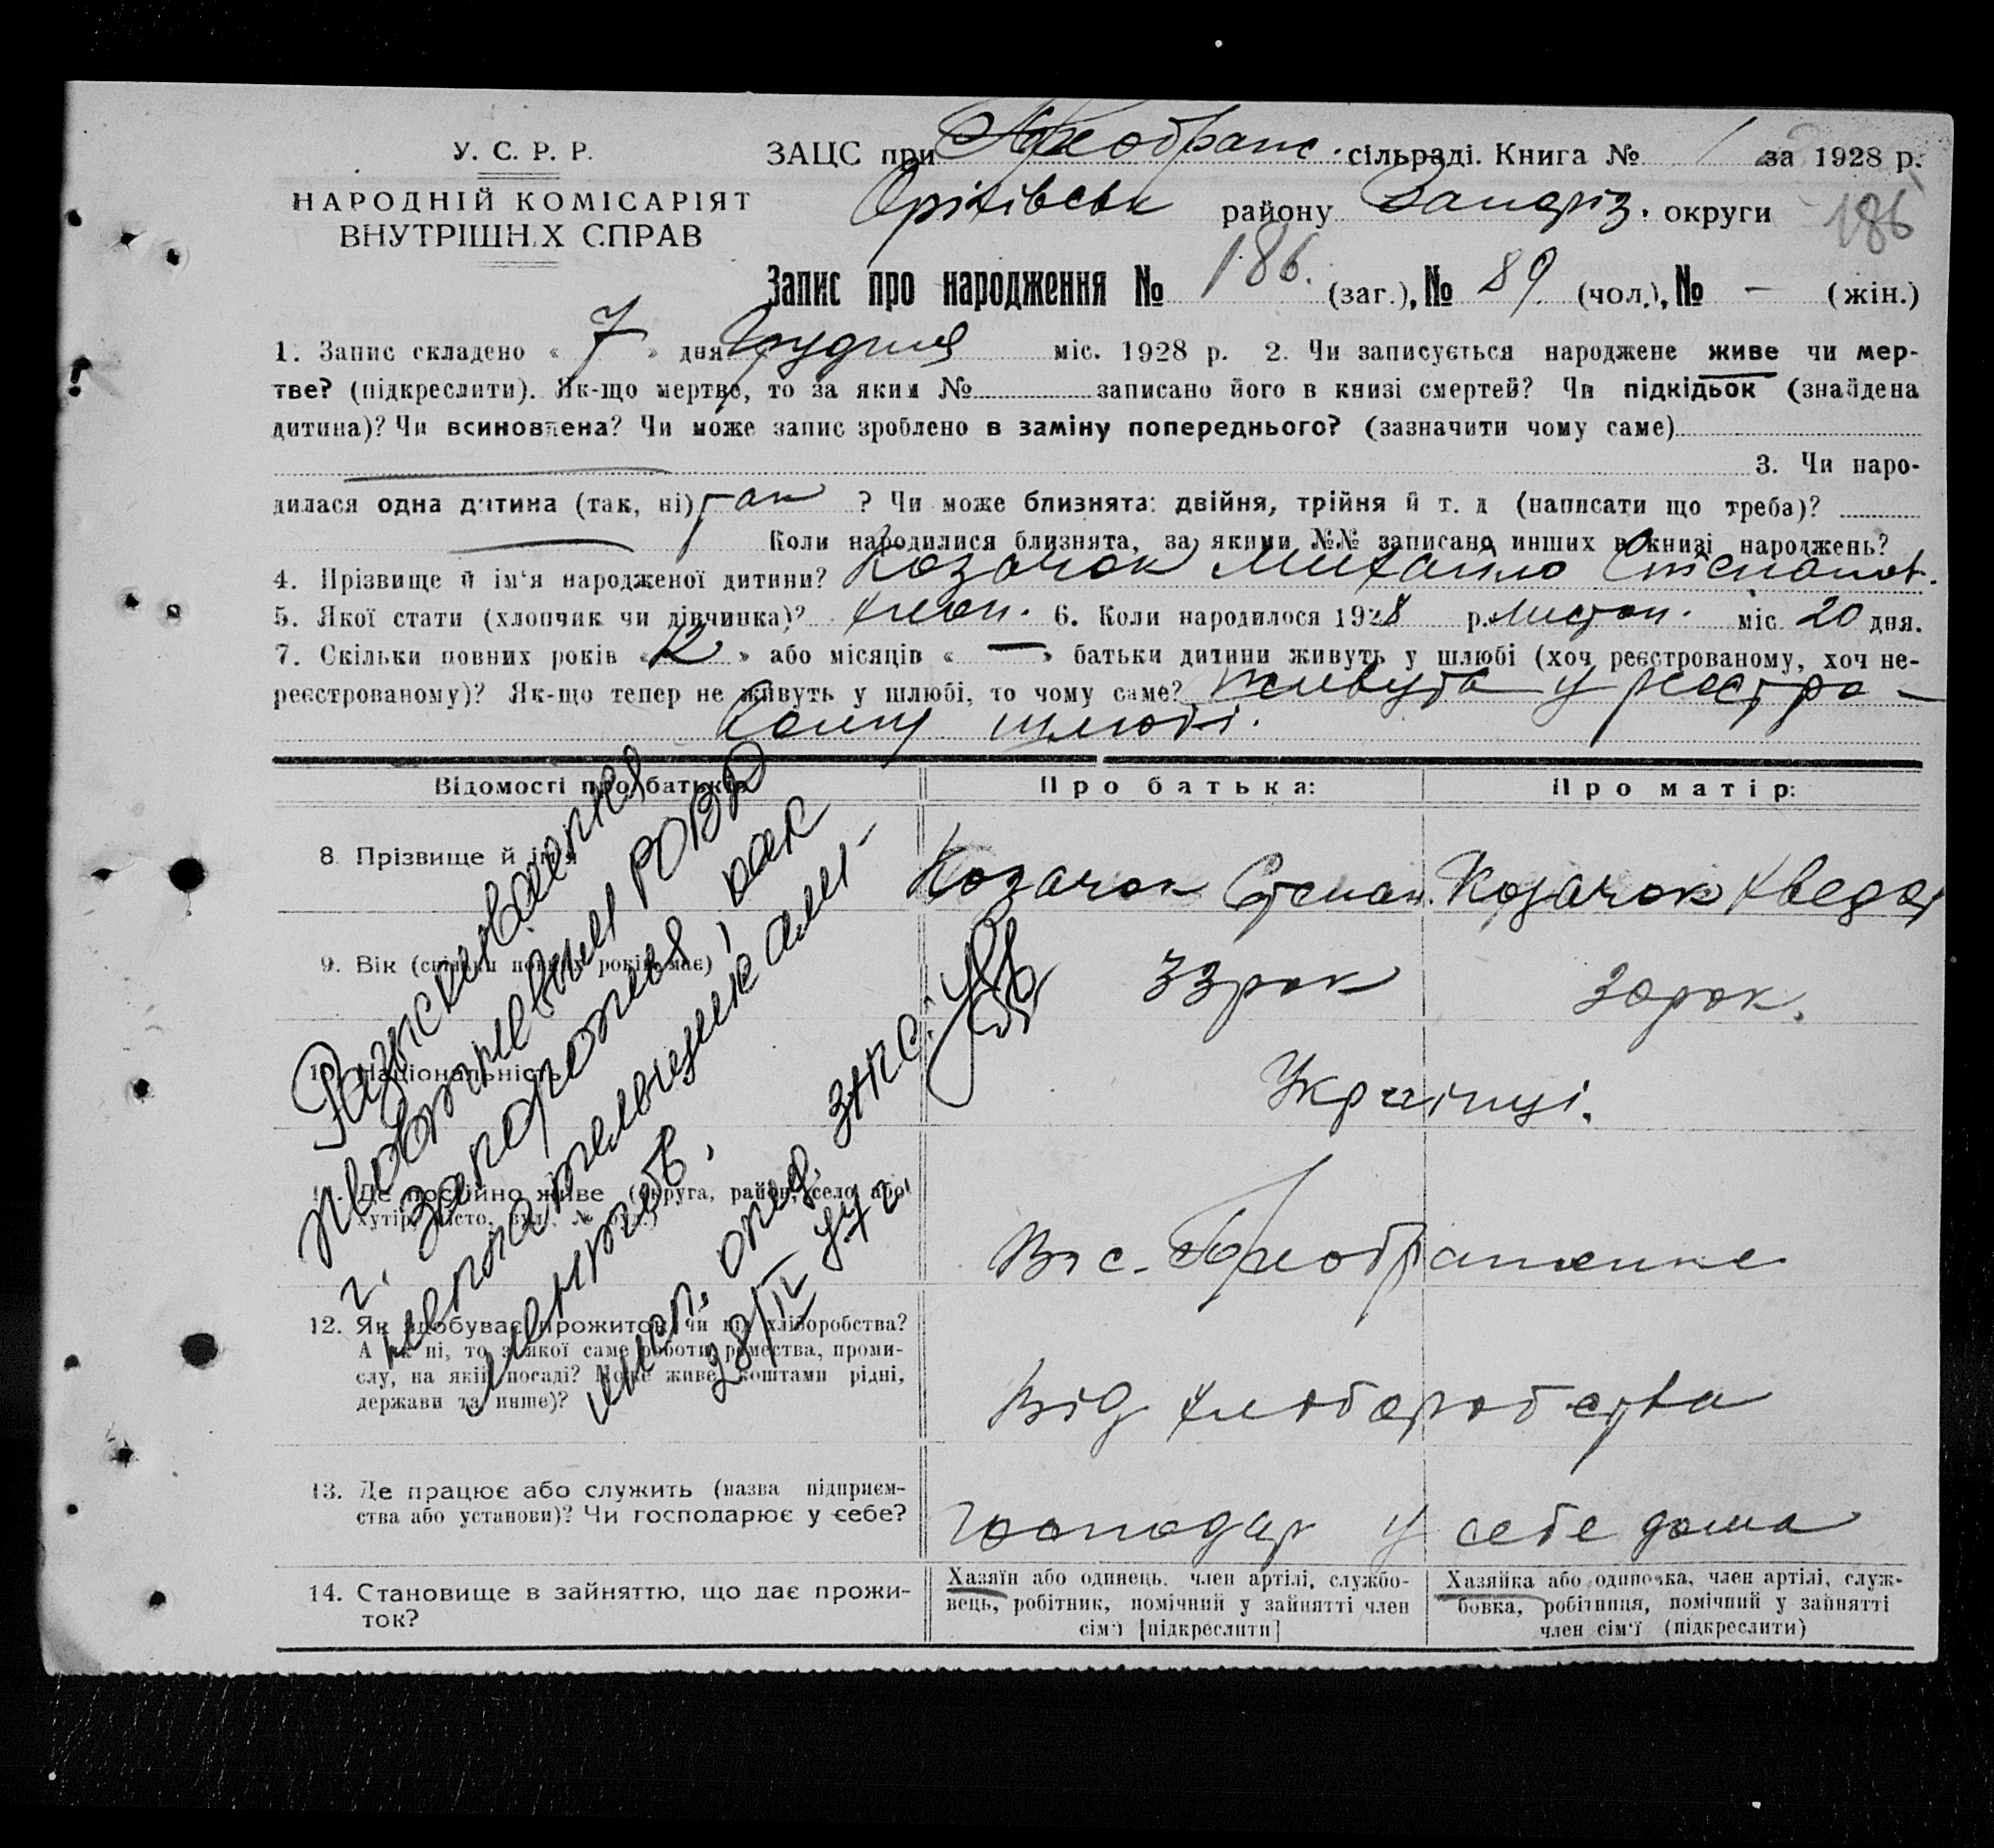 У. С. Р. Р.
НАРОДНІЙ КОМІСАРІЯТ
ВНУТРІШНІХ СПРАВ
ЗАЦС при Преображ. сільраді. Книга № 1 за 1928 р.
Оріхівськ району Запоріз. округи 186
Запис про народження № 186. (заг.), № 89 (чол.), № – (жін.)
1. Запис складено « 7 » дня Грудня міс. 1928 р. 2. Чи записується народжене живе чи мер-
тве? (підкреслити). Як-що мертве, то за яким № записано його в книзі смертей? Чи підкідьок (знайдена
дитина)? Чи всиновлена? Чи може запис зроблено в заміну попереднього? (зазначити чому саме)
3. Чи наро-
дилася одна дитина (так, ні) так ? Чи може близнята: двійня, трійня й т. д (написати що треба)?
Коли народилися близнята, за якими №№ записано инших в книзі народжень?
4. Прізвище й ім'я народженої дитини? Козачок Михайло Степанов.
5. Якої стати (хлопчик чи дівчинка)? хлоп. 6. Коли народилося 1928 р. листоп. міс 20 дня.
7. Скільки повних років « 12 » або місяців « – » батьки дитини живуть у шлюбі (хоч реєстрованому, хоч не-
реєстрованому)? Як-що тепер не живуть у шлюбі, то чому саме? живуть у реєстро-
ваному шлюбі.
Відомості про батьків Про батька: Про матір:
8. Прізвище й ім'я Козачок Степан. Козачок
9. Вік (скільки повних років має) 33 рок 30 рок.
10. Національність Українці.
11. Де постійно живе (округа, район, село або
хутір, місто, вул., № буд.) В с. Преображенке
12. Як здобуває прожиток, чи від хліборобства?
А як ні, то з якої саме роботи, ремества, проми-
слу, на якій посаді? Може живе коштами рідні,
держави та инше)? Від хліборобства
13. Де працює або служить (назва підприєм-
ства або установи)? Чи господарює у себе? господар у себе дома
14. Становище в зайняттю, що дає прожи-
ток?
Хазяїн або одинець, член артілі, службо-
вець, робітник, помічний у зайнятті член
сім'ї [підкреслити]
Хазяйка або одиночка, член артілі, служ-
бовка, робітниця, помічний у зайнятті
член сім'ї (підкреслити)
Разыскивается
Жовтневым РОВД
г. Запорожья, как
неплательщик али-
ментов.
28/IV